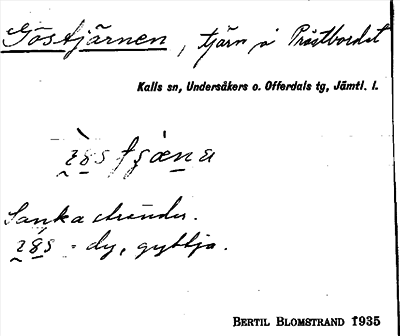 Göstjärnen, tjärn på Prästbordet
Kalls sn, Undersåkers o. Offerdals tg, Jämtl. l.
Sanka stränder.
= dy, gyttja.
BERTIL BLOMSTRAND 1935